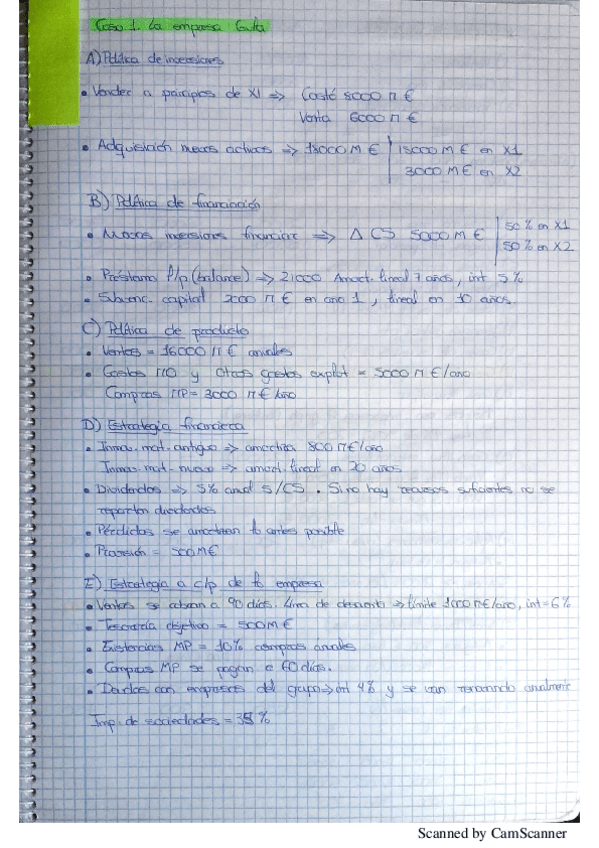 Caso 1. La empresa
A) Política de inversiones
• Vender a principios de X1 => Costó 5000 M €
Venta 6000 M €
• Adquisición nuevos activos => 18000 M € | 15000 M € en X1
3000 M € en X2
B) Política de financiación
• Nuevas inversiones financiere => Δ CS 5000 M € | 50 % en X1
50 % en X2
• Préstamo l/p (balance) => 21000 Amort. lineal 7 años, int 5 %
• Subvenc. capital 2000 M € en año 1, lineal en 10 años.
C) Política de producto
• Ventas = 16000 M € anuales
• Gastos MO y Otros gastos explot = 5000 M €/año
Compras MP = 3000 M €/año
D) Estrategia financiera
• Inmov. mat. antiguo => amortiza 800 M €/año
Inmov. mat. nuevo => amort. lineal en 20 años
• Dividendos => 5% anual s/CS. Si no hay recursos suficientes no se
reparten dividendos
• Pérdidas se amortizan lo antes posible
• Provisión = 500 M€
E) Estrategia a c/p de la empresa
• Ventas se cobran a 90 días. Línea de descuento => límite 1000 M€/año, int=6%
• Tesorería objetivo = 500 M €
• Existencias MP = 10% compras anuales
• Compras MP se pagan a 60 días.
• Deudas con empresas del grupo => int 4% y se van renovando anualmente
Imp. de sociedades = 35 %
Scanned by CamScanner